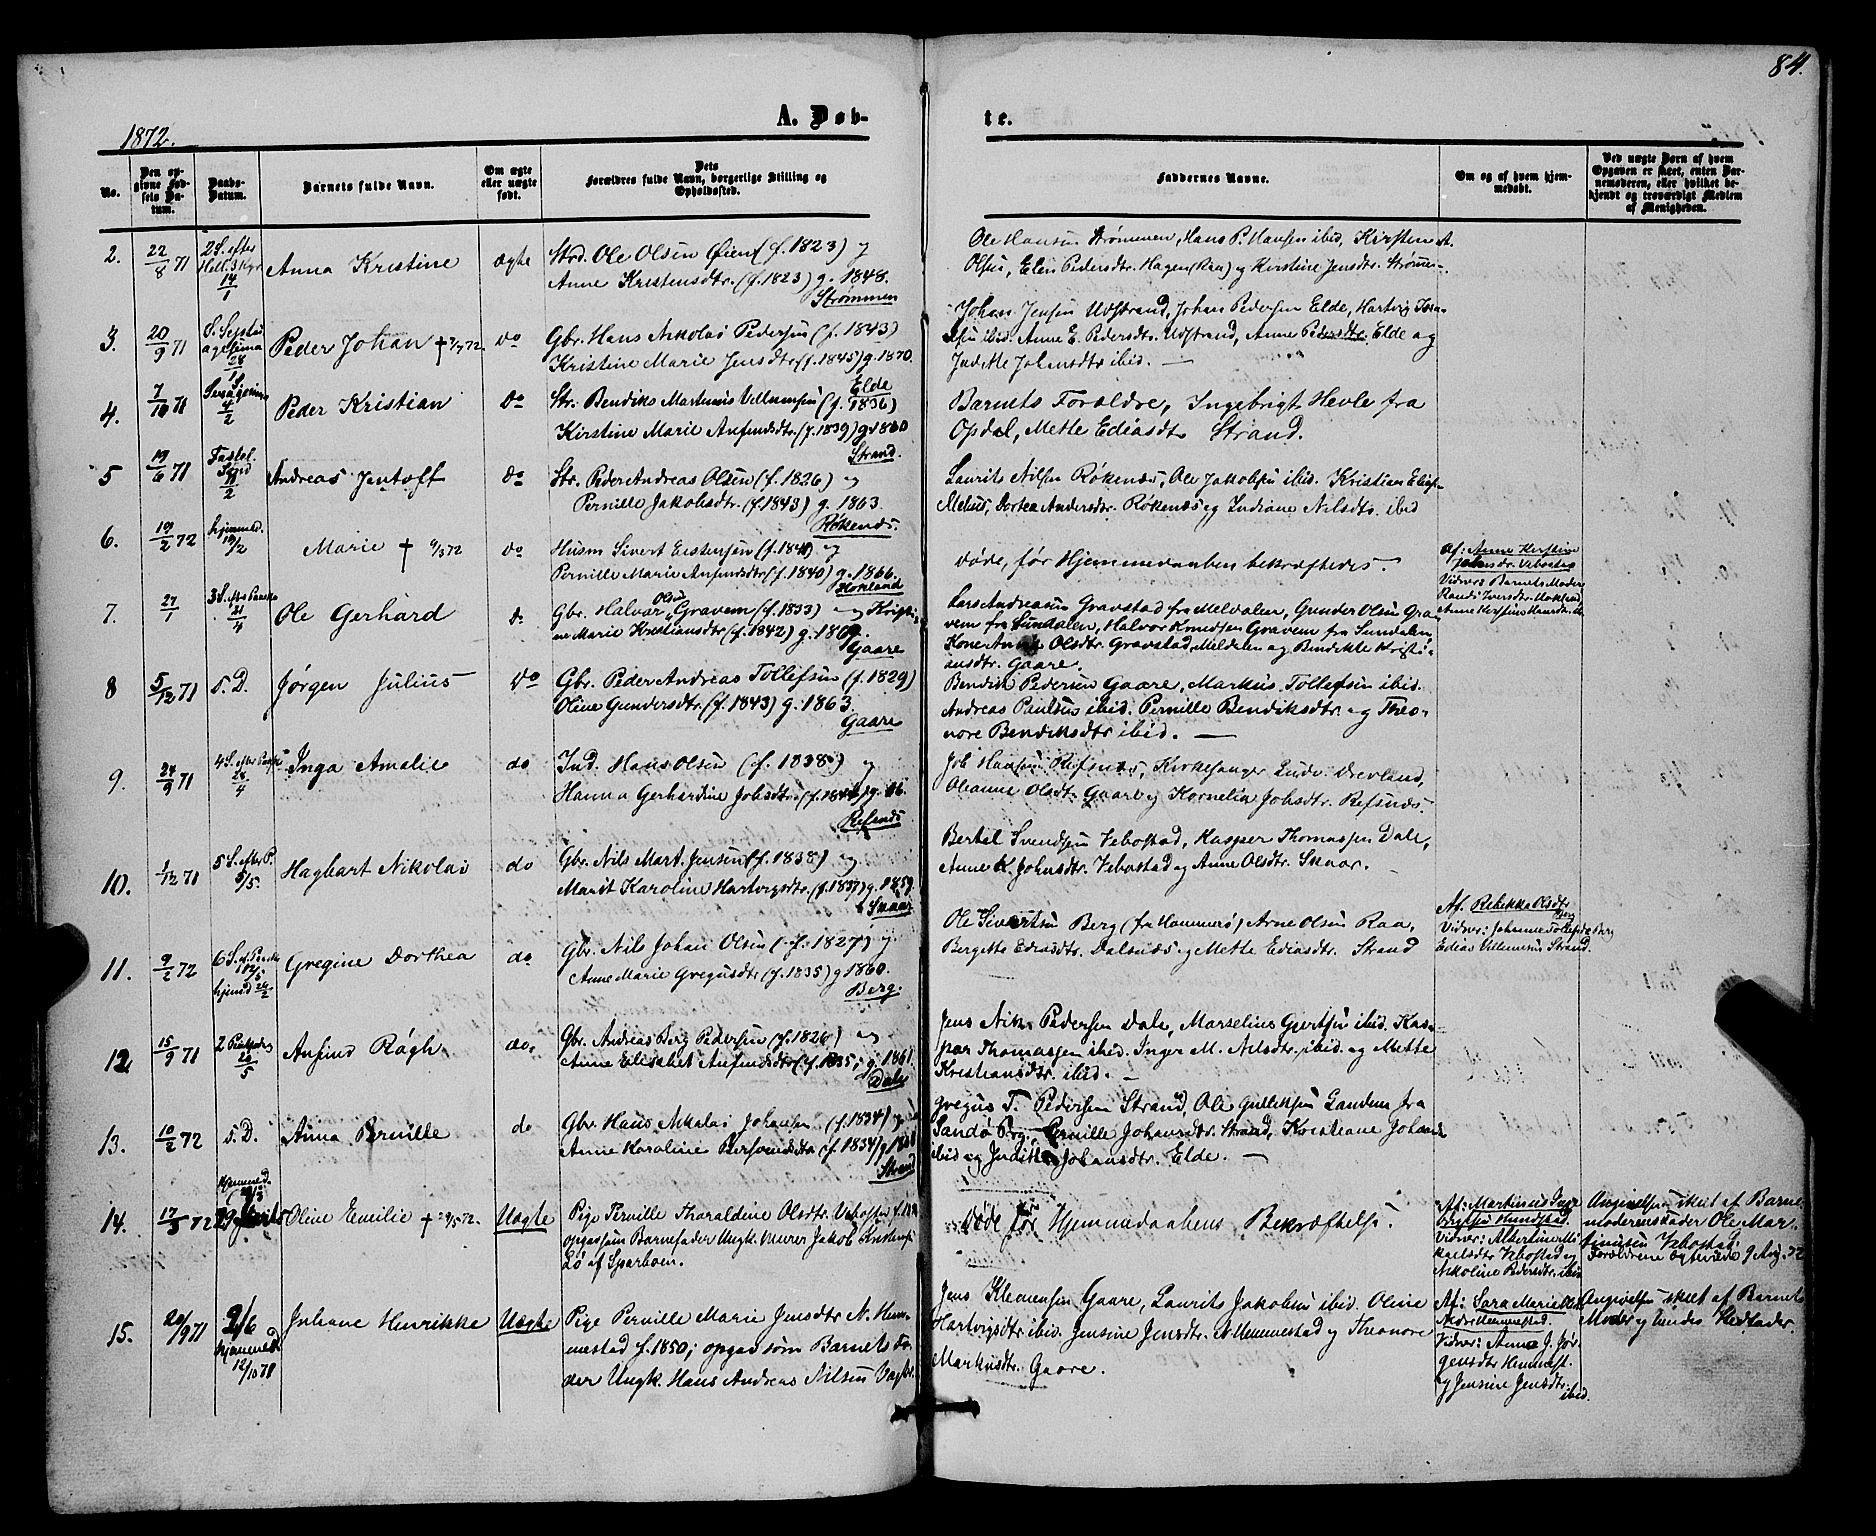 84.
A. Døb-
te.
1872.
No.
Den op-
givne Fød-
sels Da-
tum.
Daabs-
Datum.
Barnets fulde Navn.
Om ægte
eller uægte
født.
Dets
Forældres fulde Navn, borgerlige Stilling og
Opholdssted.
Faddernes Navne.
Om og af hvem hjem-
medøbt.
Ved uægte Børn af hvem
Opgaven er skeet, enten Bar-
nemoderen, eller hvilket be-
kjendt og troværdigt Medlem
af Menigheden.
2. 22/8 71 2 S. efter
Hell. 3 Kgr.
14/1
Anna Kristine
ægte
Strd. Ole Olsen Øien (f. 1823) og
Anne Kristensdtr. (f. 1823) g. 1848.
Strømmen
Ole Hansen Strømmen, Hans P. Hansen ibid, Kirsten A.
Olsen, Elen Pedersdtr. Hagen (Raa) og Kirstine Jensdtr. Strømen.
3. 20/9 71 S. Septu
agesima
28/1
Peder Johan † 72.
do
Gbr. Hans Nikolai Pedersen (f. 1843)
Kristine Marie Jensdtr. (f. 1845) g. 1870.
Elde
Johan Jensen Udstrand, Johan Pedersen Elde, Hartvig
ibid. Anne E. Pedersdtr. Udstrand, Anne Pedersdtr. Elde og
Judithe Johansdtr ibid. —
4. 7/10 71 S.
4/2
Peder Kristian
do
Str. Bendiks Martinus Villumsen (f. 1836)
Kirstine Marie Anfindsdtr. (f. 1839) g. 1860
Strand.
Barnets Forældre, Ingebrigt Hevle fra
Opdal, Mette Ediasdtr Strand.
5 19/6 71 Fastel.
Sønd
11/2
Andreas Jentoft
do
Str. Peder Andreas Olsen (f. 1826) og
Pernille Jakobsdtr. (f. 1843) g. 1863.
Røkenæs.
Laurits Nilsen Røkenæs, Ole Jakobsen ibid. Kristian
Melhus, Dortea Andersdtr. Røkenæs og Indiane Nilsdtr. ibid
6. 10/2 72 hjemmed.
19/2
Marie † 72
do
Husm Sivert Eistensen (f. 1841) og
Pernille Marie Anfindsdtr (f. 1840) g. 1866.
døde, før Hjemmedaaben bekræftedes. —
Af: Anne Kirstine
Johnsdr. Vebostad
Vidner: Barnets Moder
Randi Iversdtr.
Anne Kirstine Hansdtr.
7. 27/1 3 S. efter Paaske
21/4
Ole Gerhard
do
Gbr. Halvor Olsen Gravem (f. 1833) og Kristi-
ne Marie Kristiansdtr (f. 1842) g. 1869.
Gaare
Lars Andreasen Gravstad fra Meldalen, Gunder Olsen Gra-
vem fra Sundalen, Halvor Knudsen Gravem fra Sundalen,
Kone Olsdtr. Gravstad, Meldalen og Bendikte Kristi-
ansdtr. Gaare.
8 5/12 71 S. D.
Jørgen Julius
do
Gbr. Peder Andreas Tollefsen (f. 1829)
Oline Gundersdtr. (f. 1843) g. 1863
Gaare
Bendik Pedersen Gaare, Markus Tollefsen ibid.
Andreas Paulsen ibid. Pernille Bendiksdtr. og Theo-
nore Bendiksdtr ibid. —
9. 24/9 71 4 S. efter Paaske
28/4
Inga Amalie
do
Ind. Hans Olsen (f. 1838) og
Hanna Gerhardine Jobsdtr.
Refsnæs
Job Hansen Refsnæs, Kirkesanger Ludv. Drevland,
Oleanne Olsdtr. Gaare og Kornelia Jobsdtr. Refsnæs
10. 1/12 71 5 S. efter P.
5/5.
Hagbart Nikolai
do
Gbr. Nils Mart. Jensen (f. 1838) og
Marit Karoline Hartvigsdtr. (f. 1837) g. 1859.
Skaar
Bertel Svendsen Vebostad, Kasper Thomassen Dale,
Anne K. Johnsdtr. Vebostad og Anne Olsdtr. Skaar. —
11. 9/2 72 6 S. e. Paaske
12/5
hjemd 24/2
Gregine Dorthea
do
Gbr. Nils Johan Olsen (f. 1827) og
Anne Marie Gregusdtr (f. 1835) g 1860.
Berg.
Ole Sivertsen Berg (fra Hammerø) Arne Olsen Raa,
Bergette Ediasdtr. Dalsnæs og Mette Ediasdtr. Strand
Af. Rebekka Olsdtr
Berg
Vidner: Johannes Tollefsen Berg
Edias Villumsen Strand.
12 15/9 71 2 Pinsedag
20/5
Anfind Røgh
do.
Gbr. Andreas Berg Pedersen (f. 1826) og
Anne Elisabet Anfindsdtr (f. 1835; g. 1861
Dale
Jens Nik. Pedersen Dale, Marselius Gjertsen ibid. Kas-
par Thomassen ibid. Inger M. Nilsdtr. ibid. og Mette
Kristiansdtr. ibid. —
13. 10/2 72 S. D.
Anna Pernille
do
Gbr. Hans Nikolai Johansen (f. 1834) og
Anne Karoline (f. 1834)
Strand
Gregus T. Pedersen Strand, Ole Gulliksen Landem fra
Sandø Prg, Pernille Johansdtr. Strand, Kristiane
ibid og Judithe Johansdtr. Elde. —
14. 17/3 72 hjemmed.
Oline Emilie † 72.
Uægte
Pige Pernille Tharaldine Olsdtr. Vebostad
opgav som Barnefader Ungk. Murer Jakob
Lø af Sparboen.
Døde før Hjemmedaabens Bekræftelse.
Af: Martinus
Vidner: Albertine Mi
kaelsdtr Vebostad og
Nikoline Pedersdtr. ibid
Angivelsen skeet af Barne-
moderens Fader Ole Mar-
tinusen Vebostad.
Forældrene 9 Aug. 72
15. 20/9 71 2/6
hjemmed
12/10 71
Juliane Henrikke
Uægte
Pige Pernille Marie Jensdtr N. Hem-
mestad f. 1850; opgav som Barnets Fa-
der Ungk. Hans Andreas Nilsen
Jens Klemensen Gaare, Laurits Jakobsen ibid. Oline
Hartvigsdtr ibid. Jensine Jensdtr. N Hemmestad og Theonore
Markusdtr. Gaare.
Af: Sara Marie
Vidner: Anne J. Jør-
gensdtr Hemmest.
og Jensine Jensdtr.
ibid.
Angivelsen skeet af Barnets
Moder og hendes Stedfader.